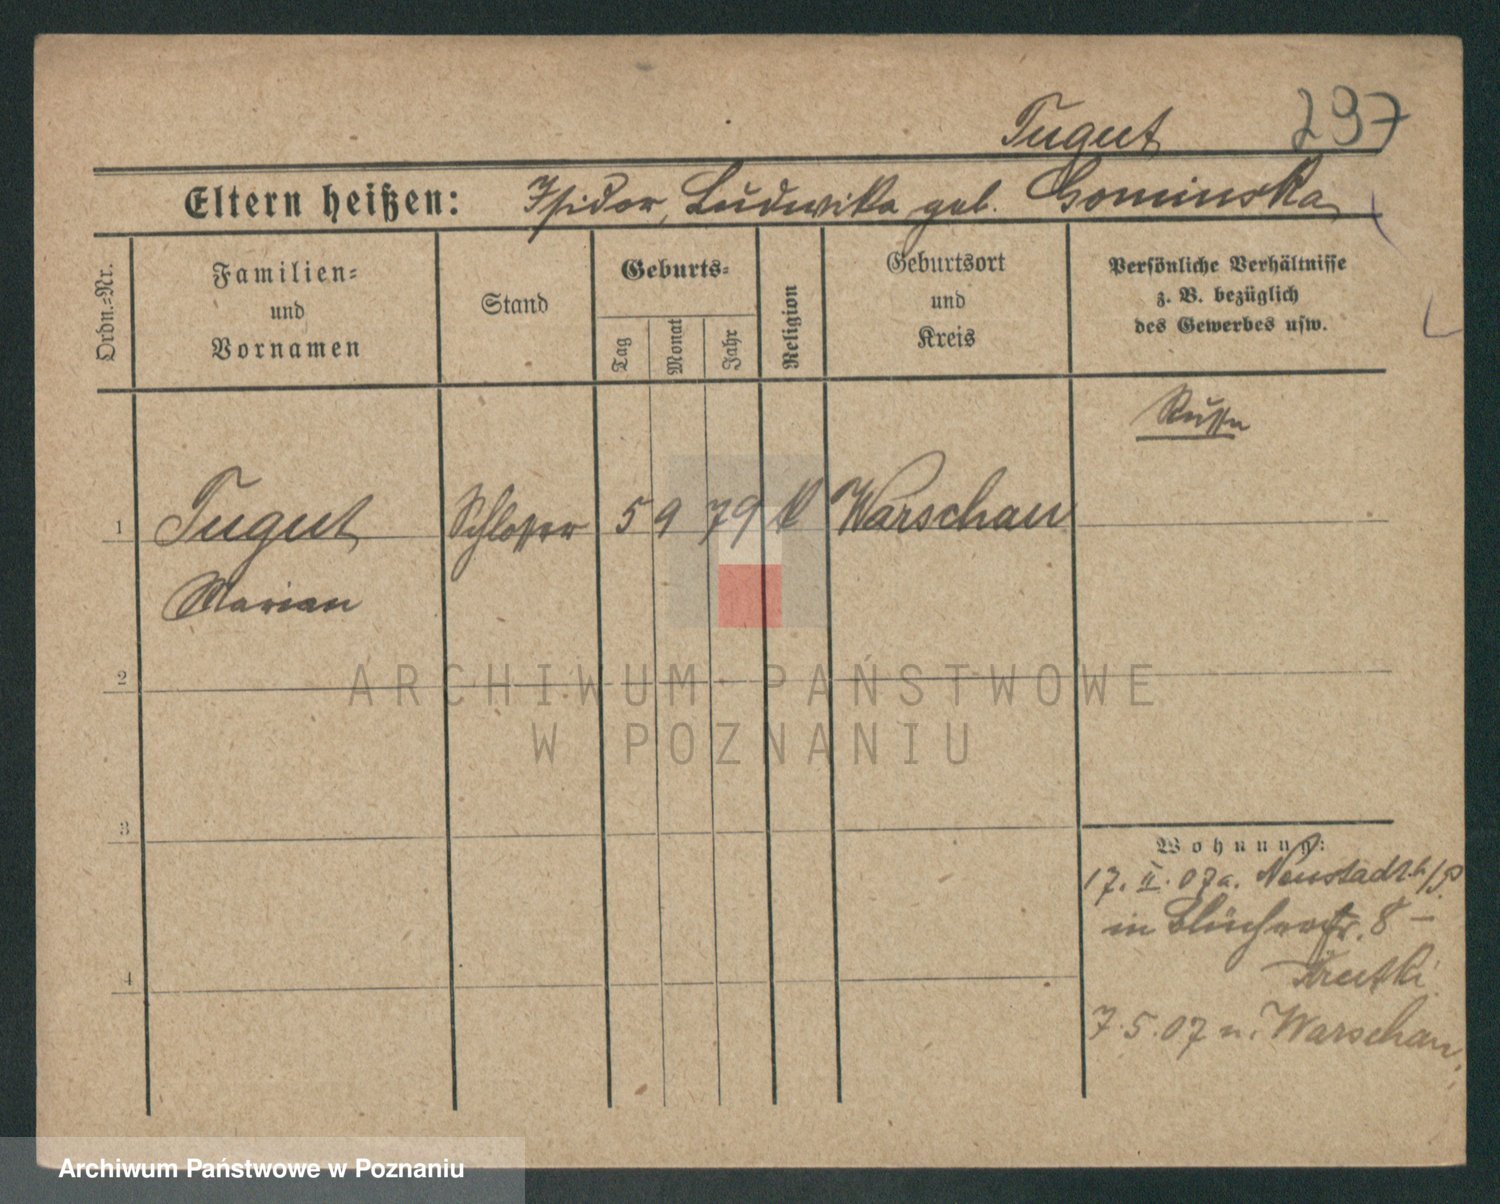 Tugut 297
Eltern heißen: Isidor, Ludwika geb. Gominska
Ordn.-Nr.
Familien-
und
Vornamen
Stand
Geburts-
Tag
Monat
Jahr
Religion
Geburtsort
und
Kreis
Persönliche Verhältnisse
z. B. bezüglich
des Gewerbes usw.
Russe
1 Tugut Schlosser 5 9 79 k Warschau
Marian
2
ARCHIWUM PAŃSTWOWE
W POZNANIU
3
4
Wohnung:
17. II. 07 a. Neustadt b/P
in Blücherstr. 8 –
7.5.07 n. Warschau
Archiwum Państwowe w Poznaniu